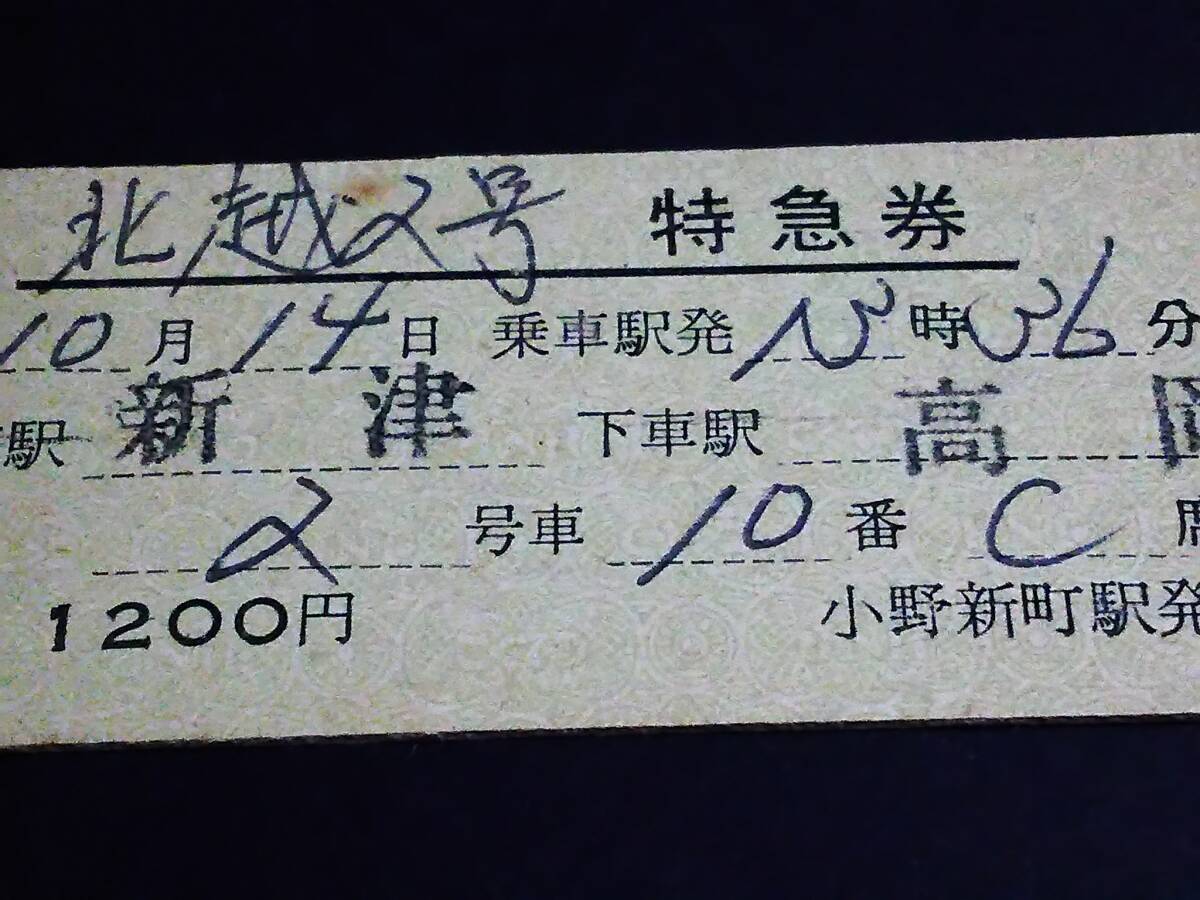 北越2号 特急券
10月14日 乗車駅発13時36分
駅 新津 下車駅 高
2号車 10番 C
1200円 小野新町駅発